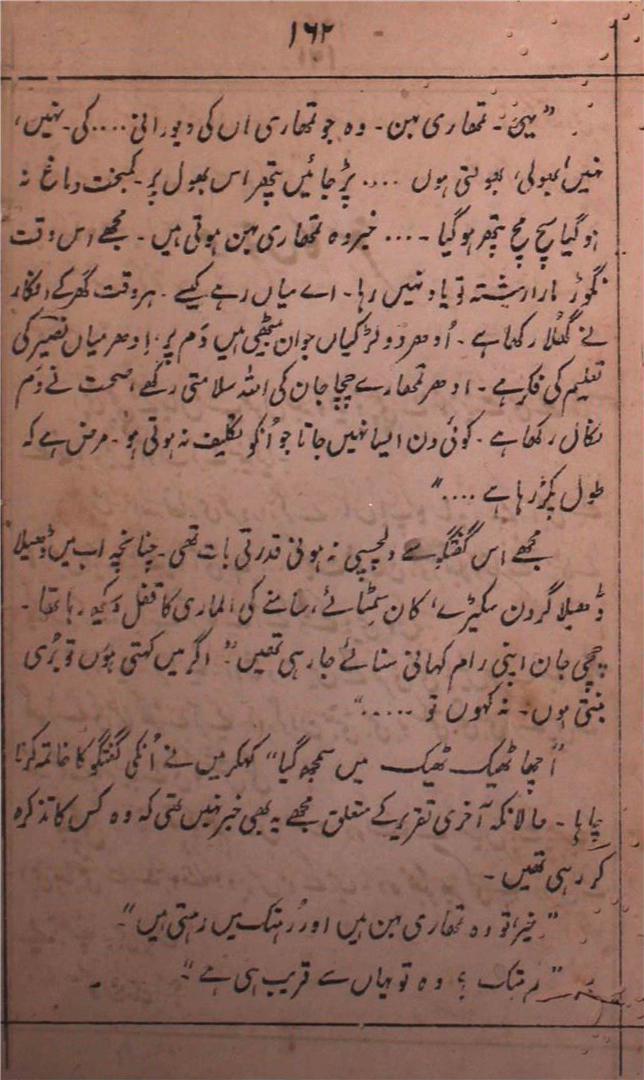 ۱۶۲
"یہی۔ تمھاری بہن۔ وہ جو تمھاری اں کی دیورانی .... کی۔ نہیں،
نہیں، بھولی، بھولتی ہوں .... پڑ جائیں پتھر اس بھول پر۔ کمبخت دماغ نہ
ہو گیا سچ مچ پتھر ہو گیا ۔ ... خیر وہ تمھاری بہن ہوتی ہیں۔ مجھے اس وقت
نگوڑ مارا رشتہ تو یاد نہیں رہا۔ اے میاں رہے کیسے۔ ہر وقت گھر کے افکار
نے گھلا رکھا ہے۔ اُدھر دو لڑکیاں جوان بیٹھی ہیں دَم پر، اِدھر میاں نصیر کی
تعلیم کی فکر ہے۔ ادھر تمھارے چچا جان کی اللہ سلامتی رکھے، صحت نے دَم
نکال رکھا ہے۔ کوئی دن ایسا نہیں جاتا جو اُنکو تکلیف نہ ہوتی ہو۔ مرض ہے کہ
طول پکڑ رہا ہے ...."
مجھے اس گفتگو سے دلچسپی نہ ہونی قدرتی بات تھی۔ چنانچہ اب میں ڈھیلا
ڈھیلا گردن سکیڑے، کان سمٹائے، سامنے کی الماری کا قفل دیکھ رہا تھا۔
چچی جان اپنی رام کہانی سنائے جا رہی تھیں۔" اگر میں کہتی ہوں تو بُری
بنتی ہوں۔ نہ کہوں تو ....."
"اچھا ٹھیک ٹھیک میں سمجھ گیا" کہکر میں نے اُنکی گفتگو کا خاتمہ کرنا
چاہا۔ حالانکہ آخری تقریر کے متعلق مجھے یہ بھی خبر نہیں تھی کہ وہ کس کا تذکرہ
کر رہی تھیں۔
"خیر، تو وہ تمھاری بہن ہیں اور رُہتک میں رہتی ہیں"۔
"رہتک ؟ وہ تو یہاں سے قریب ہی ہے"۔